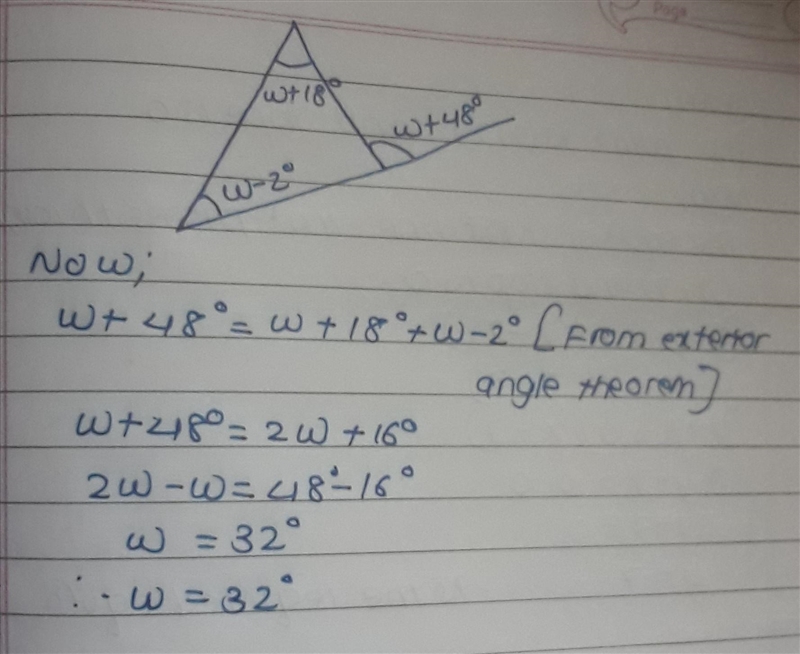 Page
w+18°
w+48°
w-2°
Now;
w+48°=w+18°+w-2° [From exterior
angle theorem]
w+48°=2w+16°
2w-w=48°-16°
w=32°
∴ w=32°